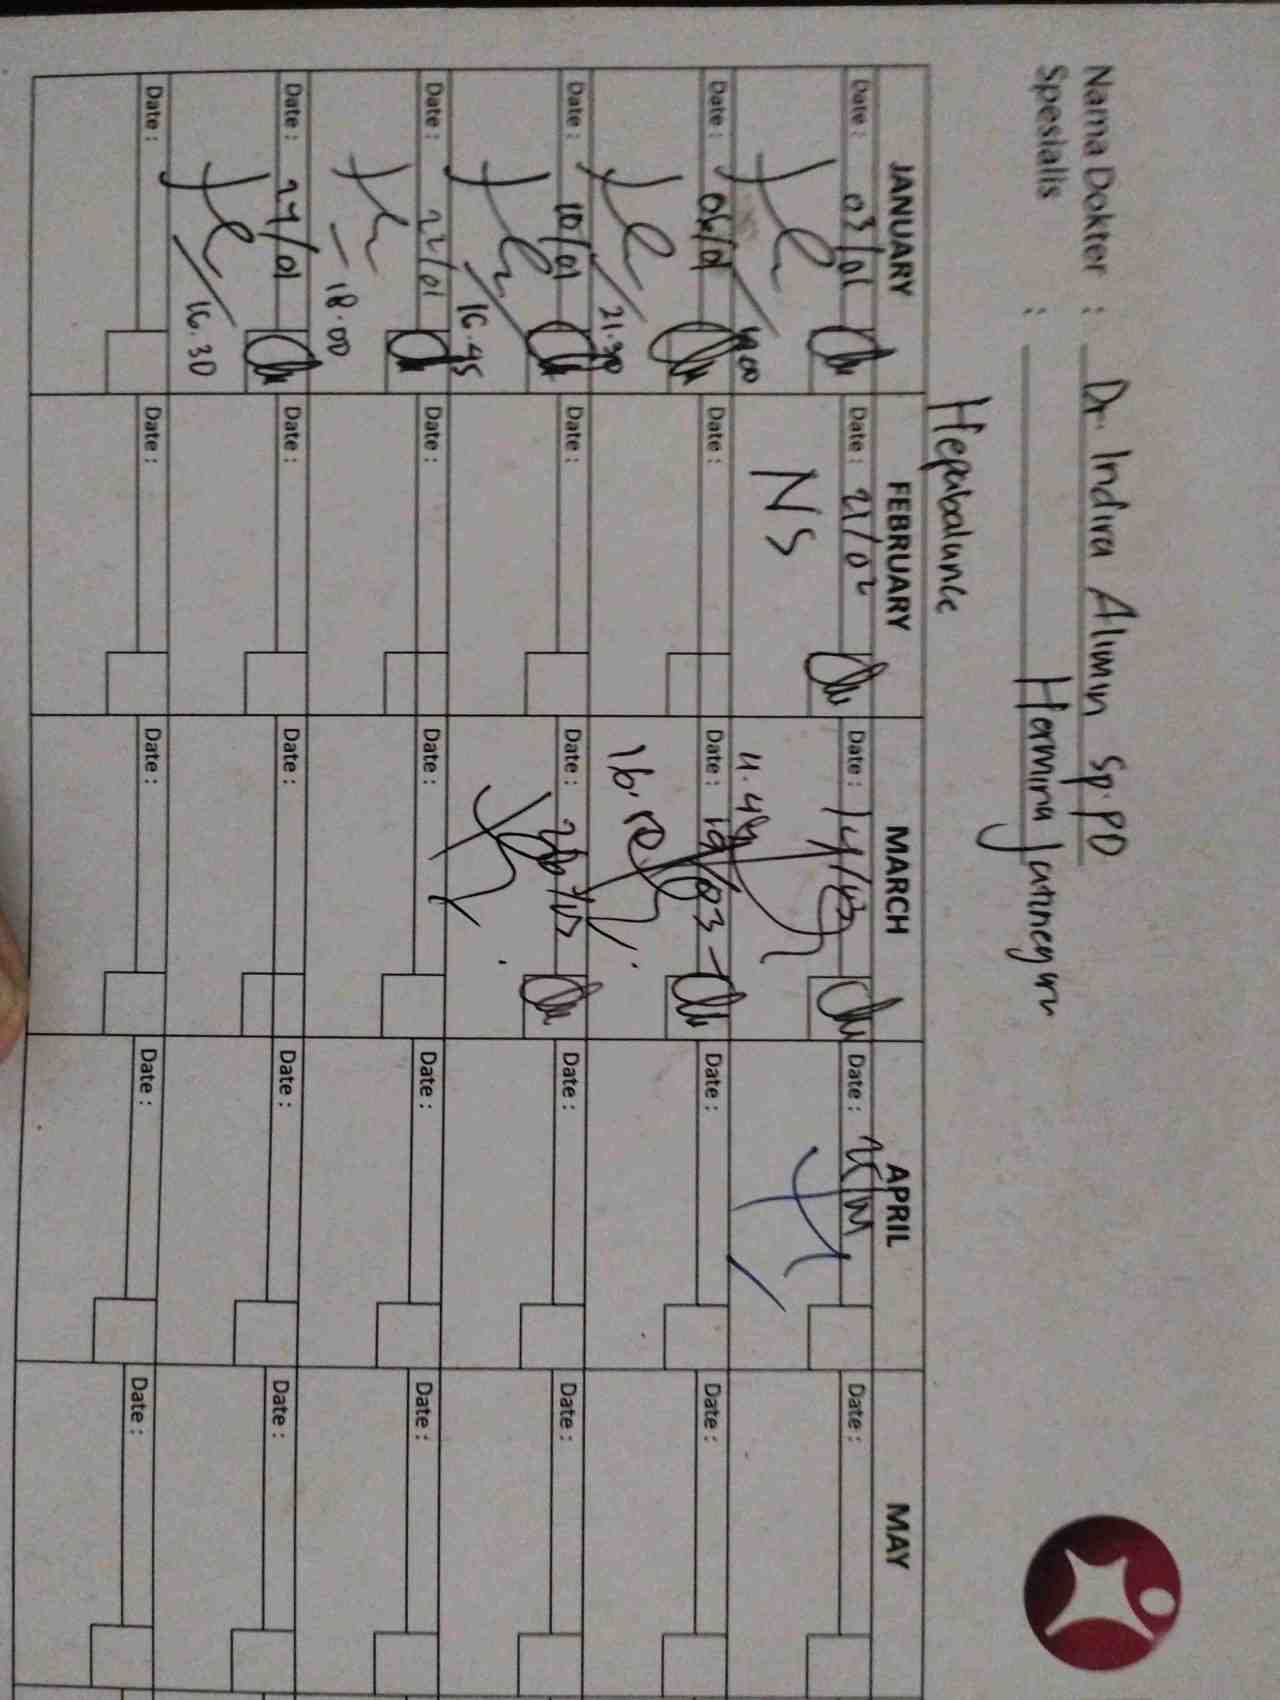 Nama Dokter : Dr. Indira Alimin Sp.PD
Spesialis : Hermina Jatinegara
Hepabalance
JANUARY FEBRUARY MARCH APRIL MAY
Date : 03/01 Date : 21/02 Date : 14/03 Date : Date :
NS
Date : 06/01 Date : Date : 19/03 Date : Date :
21.30
Date : 10/01 Date : Date : Date : Date :
16.45
Date : 22/01 Date : Date : Date : Date :
18.00
Date : 27/01 Date : Date : Date : Date :
16.30
Date : Date : Date : Date : Date :